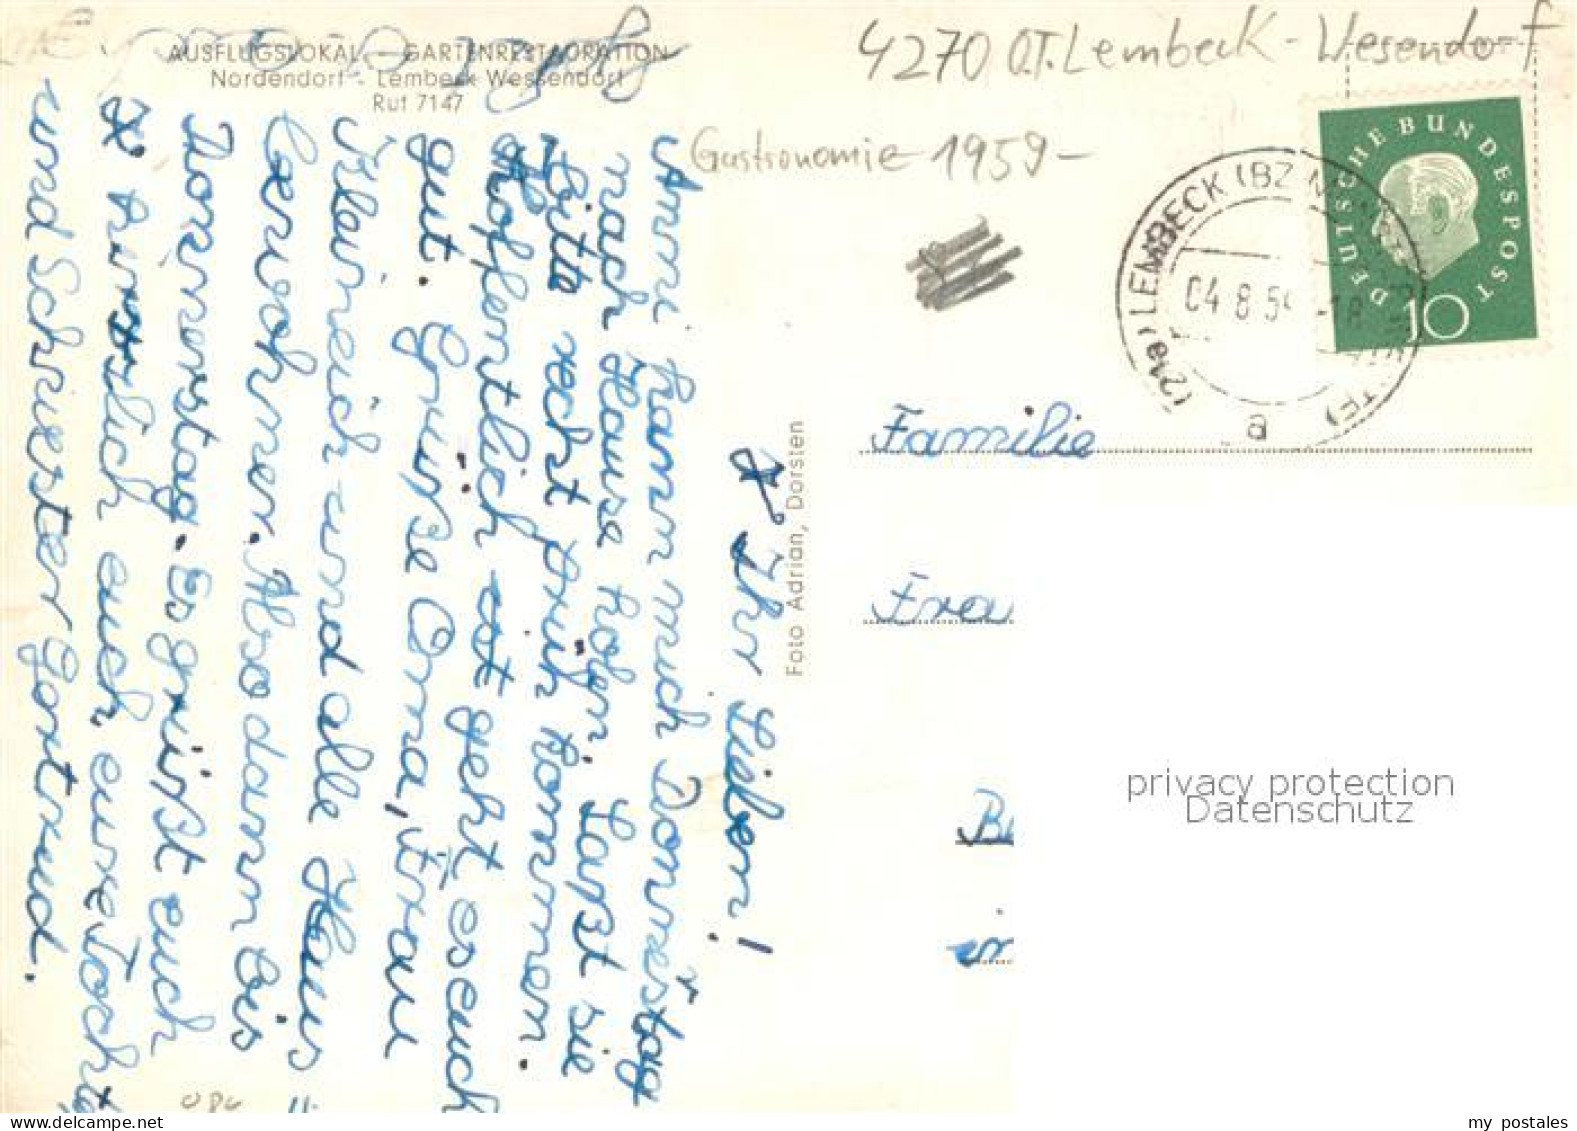 AUSFLUGSLOKAL — GARTENRESTAURATION
Nordendorf - Lembeck Wessendorf
Ruf 7147
4270 O.T. Lembeck - Wesendorf
Gastronomie 1959 -
DEUTSCHE BUNDESPOST
10
(21a) LEMBECK (BZ
04.8.59
a
Foto Adrian, Dorsten
x Ihr Lieben!
Anni kann mich Donnerstag
nach Hause holen. Laßt sie
bitte recht früh kommen.
Hoffentlich geht es euch
gut. Grüße Oma, Frau
Kleinreich und alle Haus
bewohner. Also dann bis
Donnerstag. Es grüßt euch
x herzlich euch eure Tochter
und Schwester Gertrud.
Familie
Frau
B
in
privacy protection
Datenschutz
www.delcampe.net
my_postales